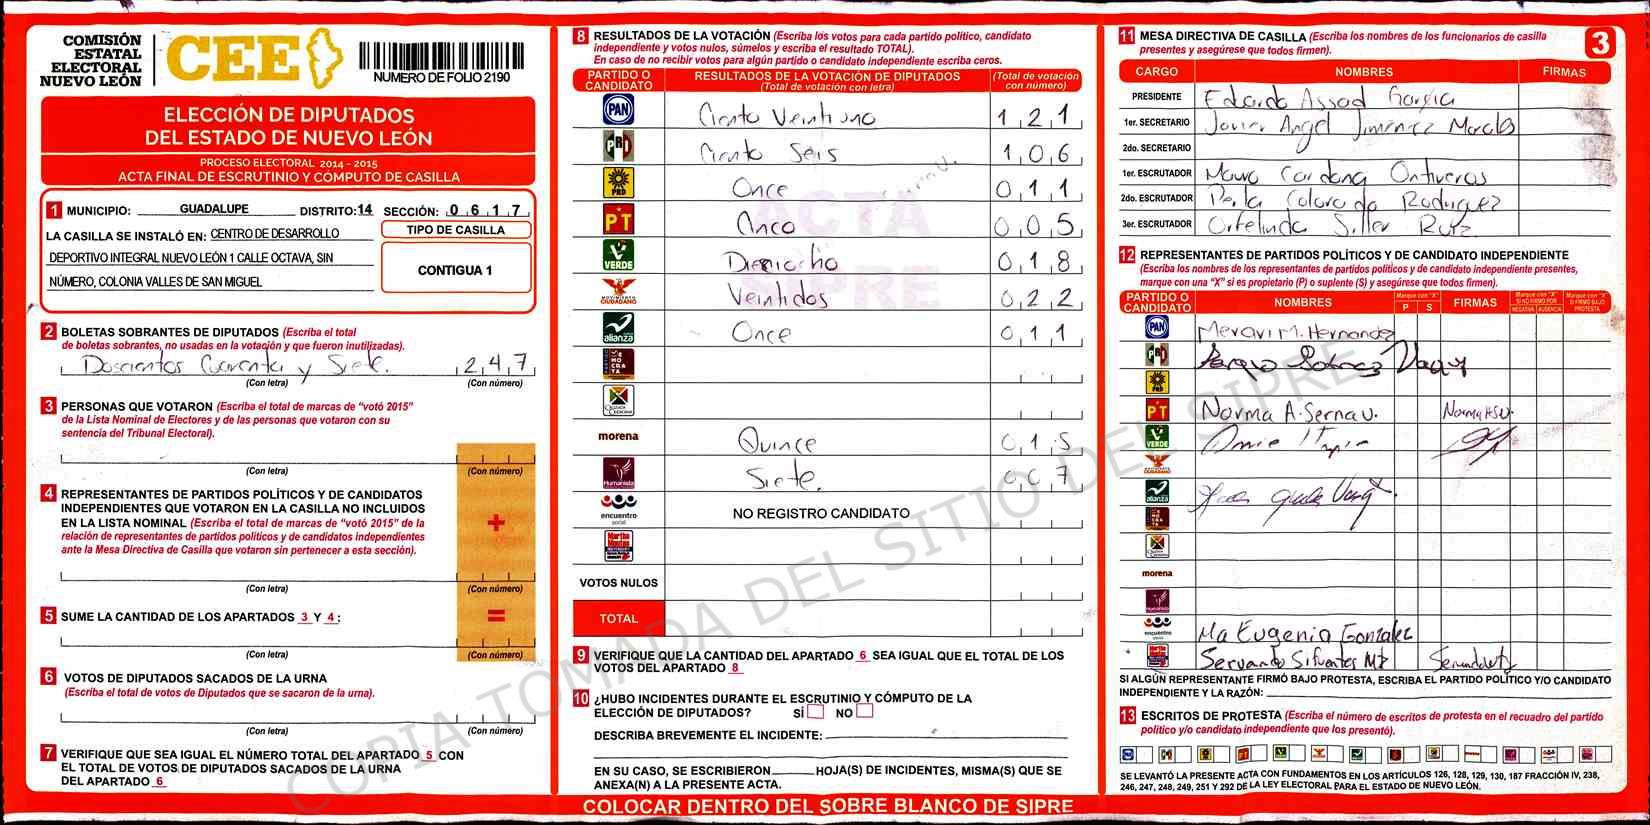 COMISIÓN
ESTATAL
ELECTORAL
NUEVO LEÓN
CEE
NUMERO DE FOLIO 2190
ELECCIÓN DE DIPUTADOS
DEL ESTADO DE NUEVO LEÓN
PROCESO ELECTORAL 2014 - 2015
ACTA FINAL DE ESCRUTINIO Y CÓMPUTO DE CASILLA
1 MUNICIPIO: GUADALUPE DISTRITO:14 SECCIÓN: 0 6 1 7
LA CASILLA SE INSTALÓ EN: CENTRO DE DESARROLLO
DEPORTIVO INTEGRAL NUEVO LEÓN 1 CALLE OCTAVA, SIN
NÚMERO, COLONIA VALLES DE SAN MIGUEL
TIPO DE CASILLA
CONTIGUA 1
2 BOLETAS SOBRANTES DE DIPUTADOS (Escriba el total
de boletas sobrantes, no usadas en la votación y que fueron inutilizadas).
Doscientos Cuarenta y Siete. 2 4 7
(Con letra) (Con número)
3 PERSONAS QUE VOTARON (Escriba el total de marcas de “votó 2015”
de la Lista Nominal de Electores y de las personas que votaron con su
sentencia del Tribunal Electoral).
(Con letra) (Con número)
4 REPRESENTANTES DE PARTIDOS POLÍTICOS Y DE CANDIDATOS
INDEPENDIENTES QUE VOTARON EN LA CASILLA NO INCLUIDOS
EN LA LISTA NOMINAL (Escriba el total de marcas de “votó 2015” de la
relación de representantes de partidos políticos y de candidatos independientes
ante la Mesa Directiva de Casilla que votaron sin pertenecer a esta sección).
+
(Con letra) (Con número)
5 SUME LA CANTIDAD DE LOS APARTADOS 3 Y 4:
=
(Con letra) (Con número)
6 VOTOS DE DIPUTADOS SACADOS DE LA URNA
(Escriba el total de votos de Diputados que se sacaron de la urna).
(Con letra) (Con número)
7 VERIFIQUE QUE SEA IGUAL EL NÚMERO TOTAL DEL APARTADO 5 CON
EL TOTAL DE VOTOS DE DIPUTADOS SACADOS DE LA URNA
DEL APARTADO 6
8 RESULTADOS DE LA VOTACIÓN (Escriba los votos para cada partido político, candidato
independiente y votos nulos, súmelos y escriba el resultado TOTAL).
En caso de no recibir votos para algún partido o candidato independiente escriba ceros.
PARTIDO O CANDIDATO RESULTADOS DE LA VOTACIÓN DE DIPUTADOS (Total de votación con letra) (Total de votación con número)
PAN Ciento Veintiuno 1 2 1
PRD Ciento Seis 1 0 6
PRD Once 0 1 1
PT Cinco 0 0 5
VERDE Dieciocho 0 1 8
MOVIMIENTO CIUDADANO Veintidos 0 2 2
alianza Once 0 1 1
DEMOCRATA
Cruzada Ciudadana
morena Quince 0 1 5
Humanista Siete. 0 0 7
encuentro social NO REGISTRO CANDIDATO
VOTOS NULOS
TOTAL
9 VERIFIQUE QUE LA CANTIDAD DEL APARTADO 6 SEA IGUAL QUE EL TOTAL DE LOS
VOTOS DEL APARTADO 8
10 ¿HUBO INCIDENTES DURANTE EL ESCRUTINIO Y CÓMPUTO DE LA
ELECCIÓN DE DIPUTADOS? SÍ NO
DESCRIBA BREVEMENTE EL INCIDENTE:
EN SU CASO, SE ESCRIBIERON HOJA(S) DE INCIDENTES, MISMA(S) QUE SE
ANEXA(N) A LA PRESENTE ACTA.
ACTA
SIPRE
COPIA TOMADA DEL SITIO DEL SIPRE
11 MESA DIRECTIVA DE CASILLA (Escriba los nombres de los funcionarios de casilla
presentes y asegúrese que todos firmen).
3
CARGO NOMBRES FIRMAS
PRESIDENTE Eduardo Assad Garcia
1er. SECRETARIO Javier Angel Jimenez Morales
2do. SECRETARIO
1er. ESCRUTADOR Mauro Cardona Ontiveros
2do. ESCRUTADOR Perla Colorado Rodriguez
3er. ESCRUTADOR Ortelinda Siller Ruiz
12 REPRESENTANTES DE PARTIDOS POLÍTICOS Y DE CANDIDATO INDEPENDIENTE
(Escriba los nombres de los representantes de partidos políticos y de candidato independiente presentes,
marque con una “X” si es propietario (P) o suplente (S) y asegúrese que todos firmen).
PARTIDO O CANDIDATO NOMBRES Marque con “X” P S FIRMAS Marque con “X” SI NO FIRMÓ POR NEGATIVA AUSENCIA Marque con “X” SI FIRMÓ BAJO PROTESTA
PAN Meravi M. Hernandez
PRD
PRD
PT Norma A. Serna U.
VERDE
alianza
morena
Humanista
encuentro social Ma Eugenia Gonzalez
Servando Sifuentes Mtz
SI ALGÚN REPRESENTANTE FIRMÓ BAJO PROTESTA, ESCRIBA EL PARTIDO POLÍTICO Y/O CANDIDATO
INDEPENDIENTE Y LA RAZÓN:
13 ESCRITOS DE PROTESTA (Escriba el número de escritos de protesta en el recuadro del partido
político y/o candidato independiente que los presentó).
SE LEVANTÓ LA PRESENTE ACTA CON FUNDAMENTOS EN LOS ARTÍCULOS 126, 128, 129, 130, 187 FRACCIÓN IV, 238,
246, 247, 248, 249, 251 Y 292 DE LA LEY ELECTORAL PARA EL ESTADO DE NUEVO LEÓN.
COLOCAR DENTRO DEL SOBRE BLANCO DE SIPRE